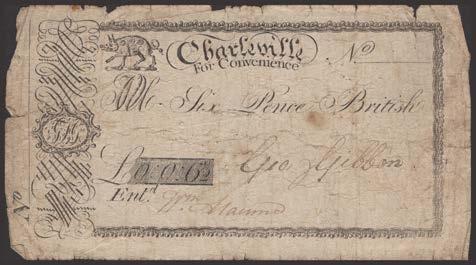 Charleville No
For Convenience
Six Pence British
£0:0:6½
Geo J Gibbon
Entd Wm